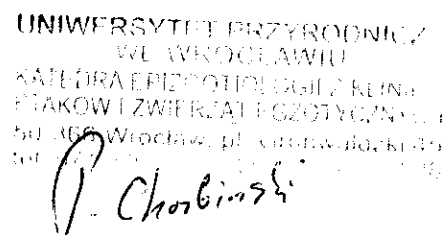 UNIWERSYTET PRZYRODNICZ
WE WROCŁAWIU
KATEDRA EPIZOOTIOLOGII Z KLINI
PTAKÓW I ZWIERZĄT EGZOTYCZNYCH
50-366 Wrocław, pl. Grunwaldzki 45
tel.
P. Chorbiński